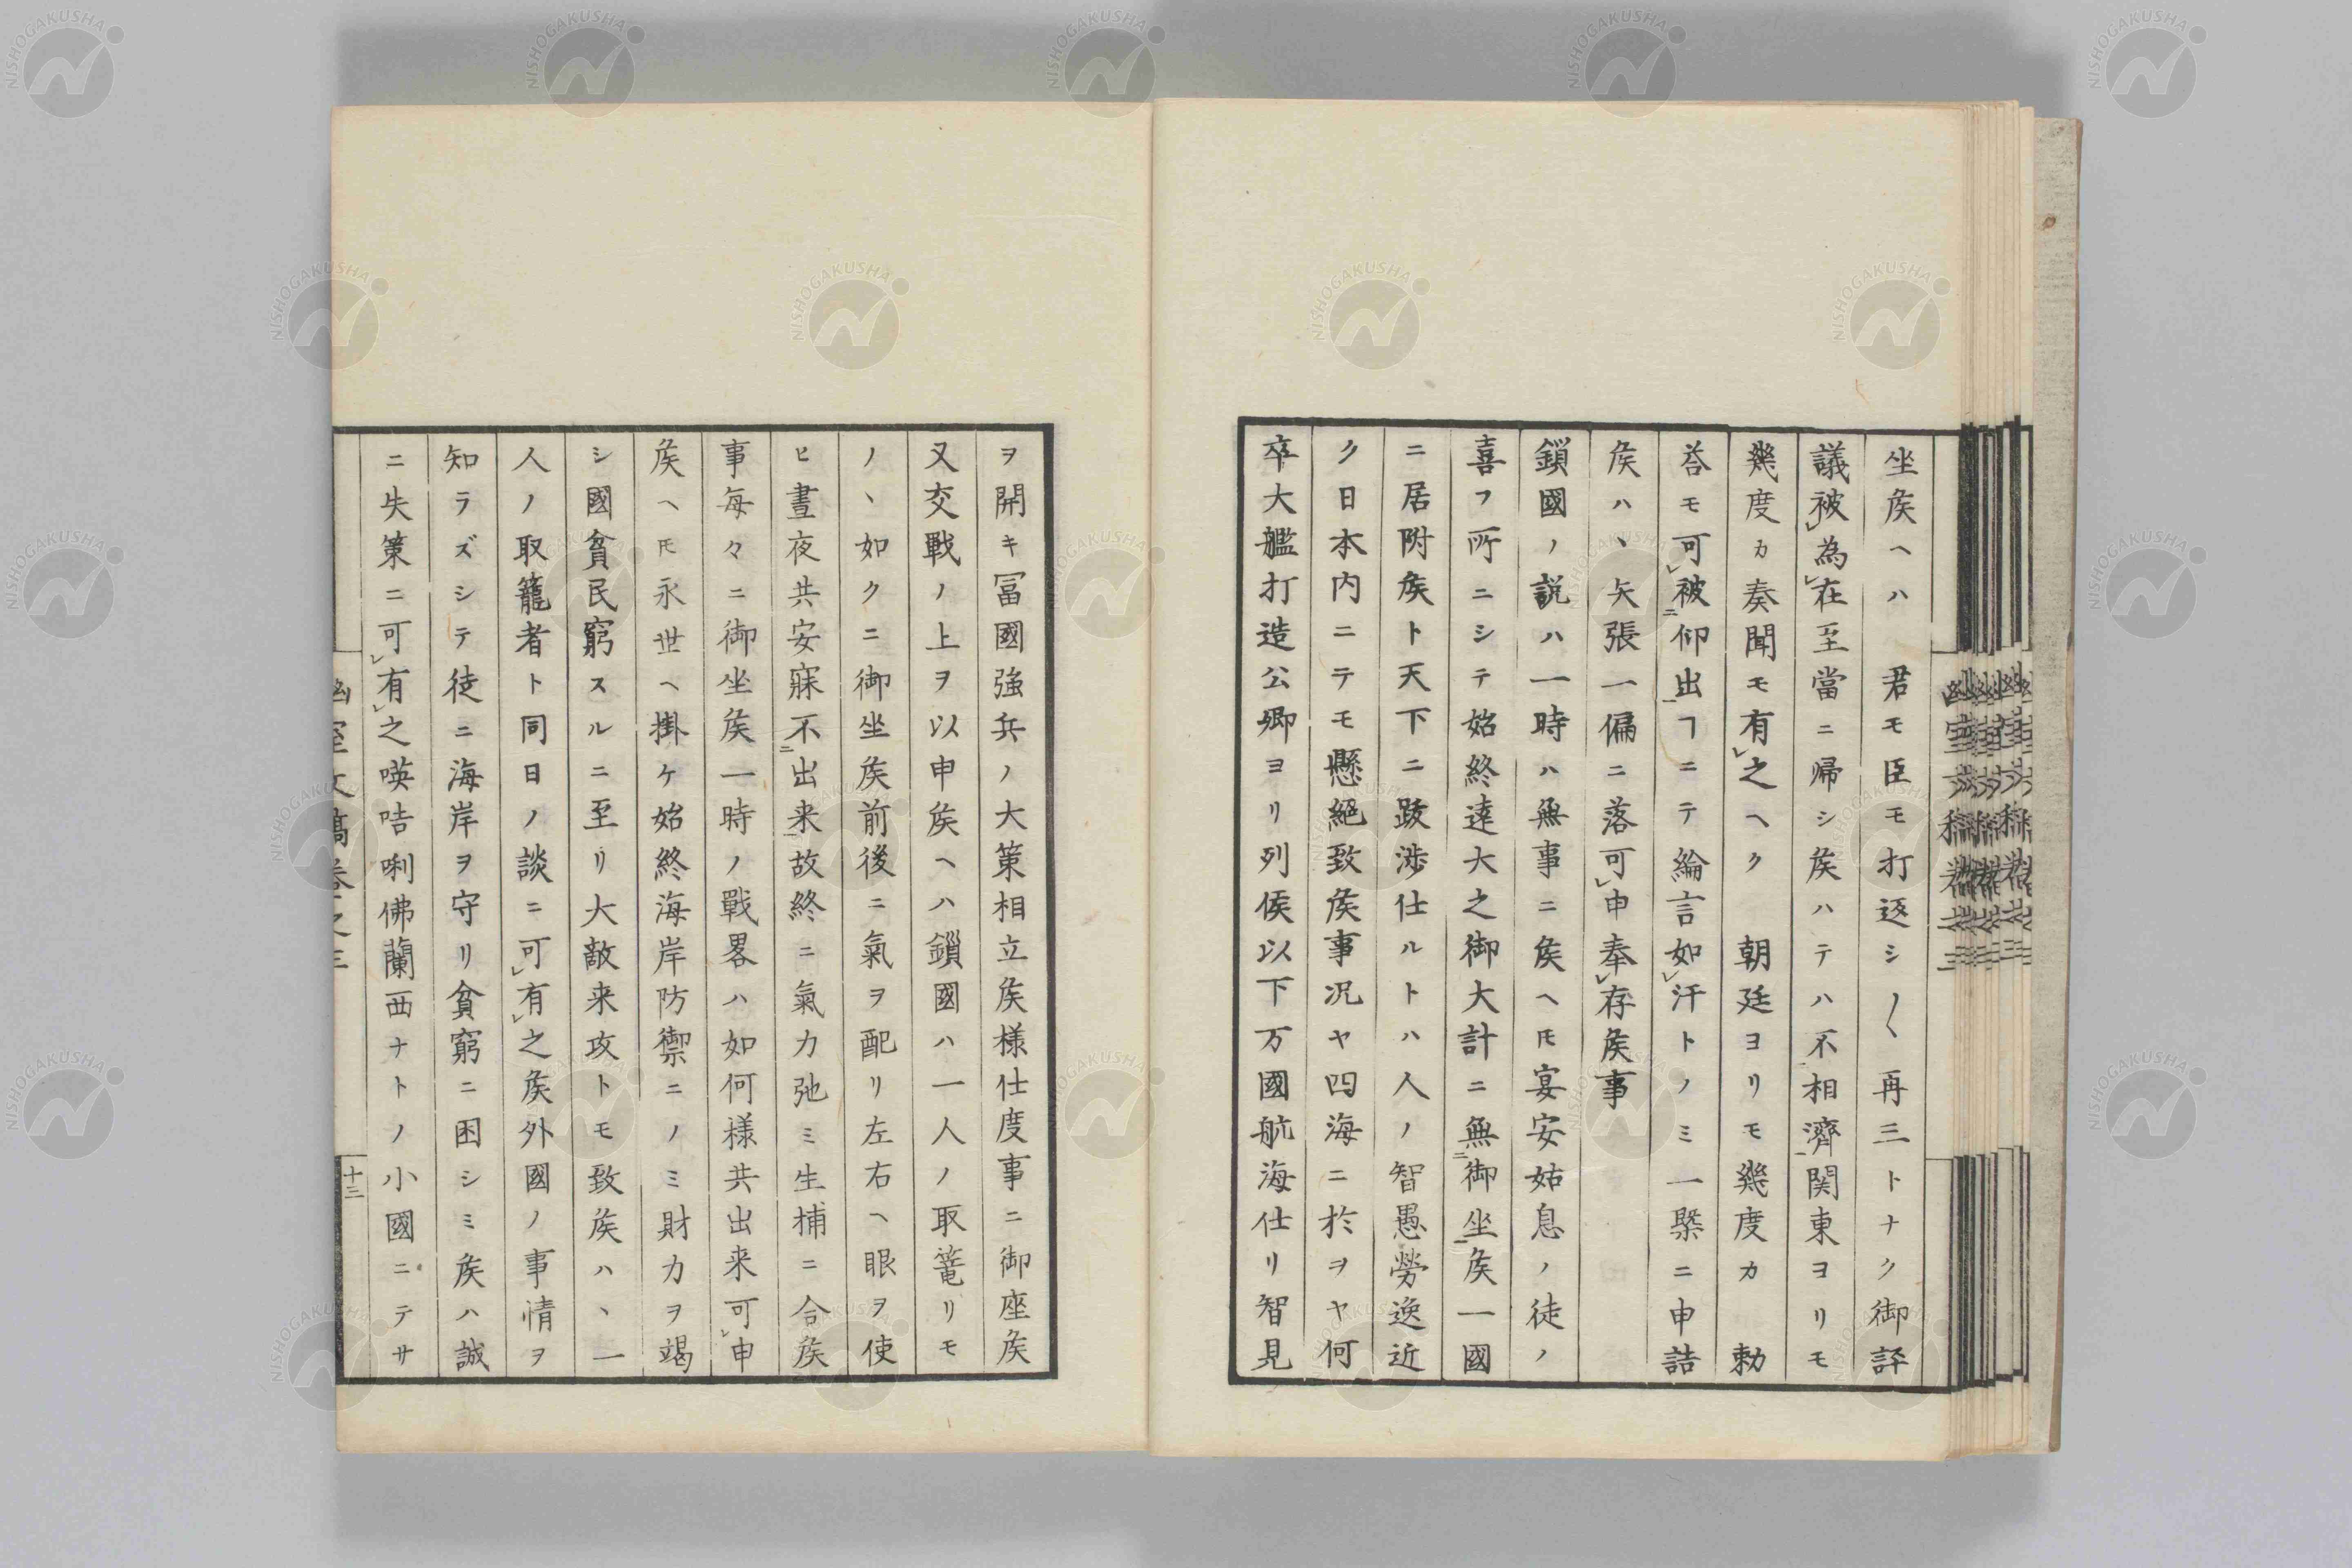 坐矦ヘハ　君モ臣モ打返シ〱再三トナク御評
議被為在至當ニ帰シ矦ハテハ不相濟関東ヨリモ
幾度カ奏聞モ有之ヘク　朝廷ヨリモ幾度カ　勅
荅モ可被仰出ヿニテ綸言如汗トノミ一槩ニ申詰
矦ハヽ矢張一偏ニ落可申奉存矦事
鎖國ノ説ハ一時ハ無事ニ矦ヘ𪜈宴安姑息ノ徒ノ
喜フ所ニシテ始終遠大之御大計ニ無御坐矦一國
ニ居附矦ト天下ニ跋渉仕ルトハ人ノ智愚勞逸近
ク日本内ニテモ懸絕致矦事况ヤ四海ニ於ヲヤ何
卒大艦打造公卿ヨリ列侯以下万國航海仕リ智見
ヲ開キ冨國強兵ノ大策相立矦様仕度事ニ御座矦
又交戰ノ上ヲ以申矦ヘハ鎖國ハ一人ノ取篭リモ
ノヽ如クニ御坐矦前後ニ氣ヲ配リ左右ヘ眼ヲ使
ヒ晝夜共安寐不出来故終ニ氣力弛ミ生捕ニ合矦
事每々ニ御坐矦一時ノ戰畧ハ如何様共出来可申
矦ヘ𪜈永世ヘ掛ケ始終海岸防禦ニノミ財力ヲ竭
シ國貧民窮スルニ至リ大敵来攻トモ致矦ハヽ一
人ノ取籠者ト同日ノ談ニ可有之矦外國ノ事情ヲ
知ラズシテ徒ニ海岸ヲ守リ貧窮ニ困シミ矦ハ誠
ニ失策ニ可有之暎咭唎佛蘭西ナトノ小國ニテサ
幽室文稿卷之三
十三